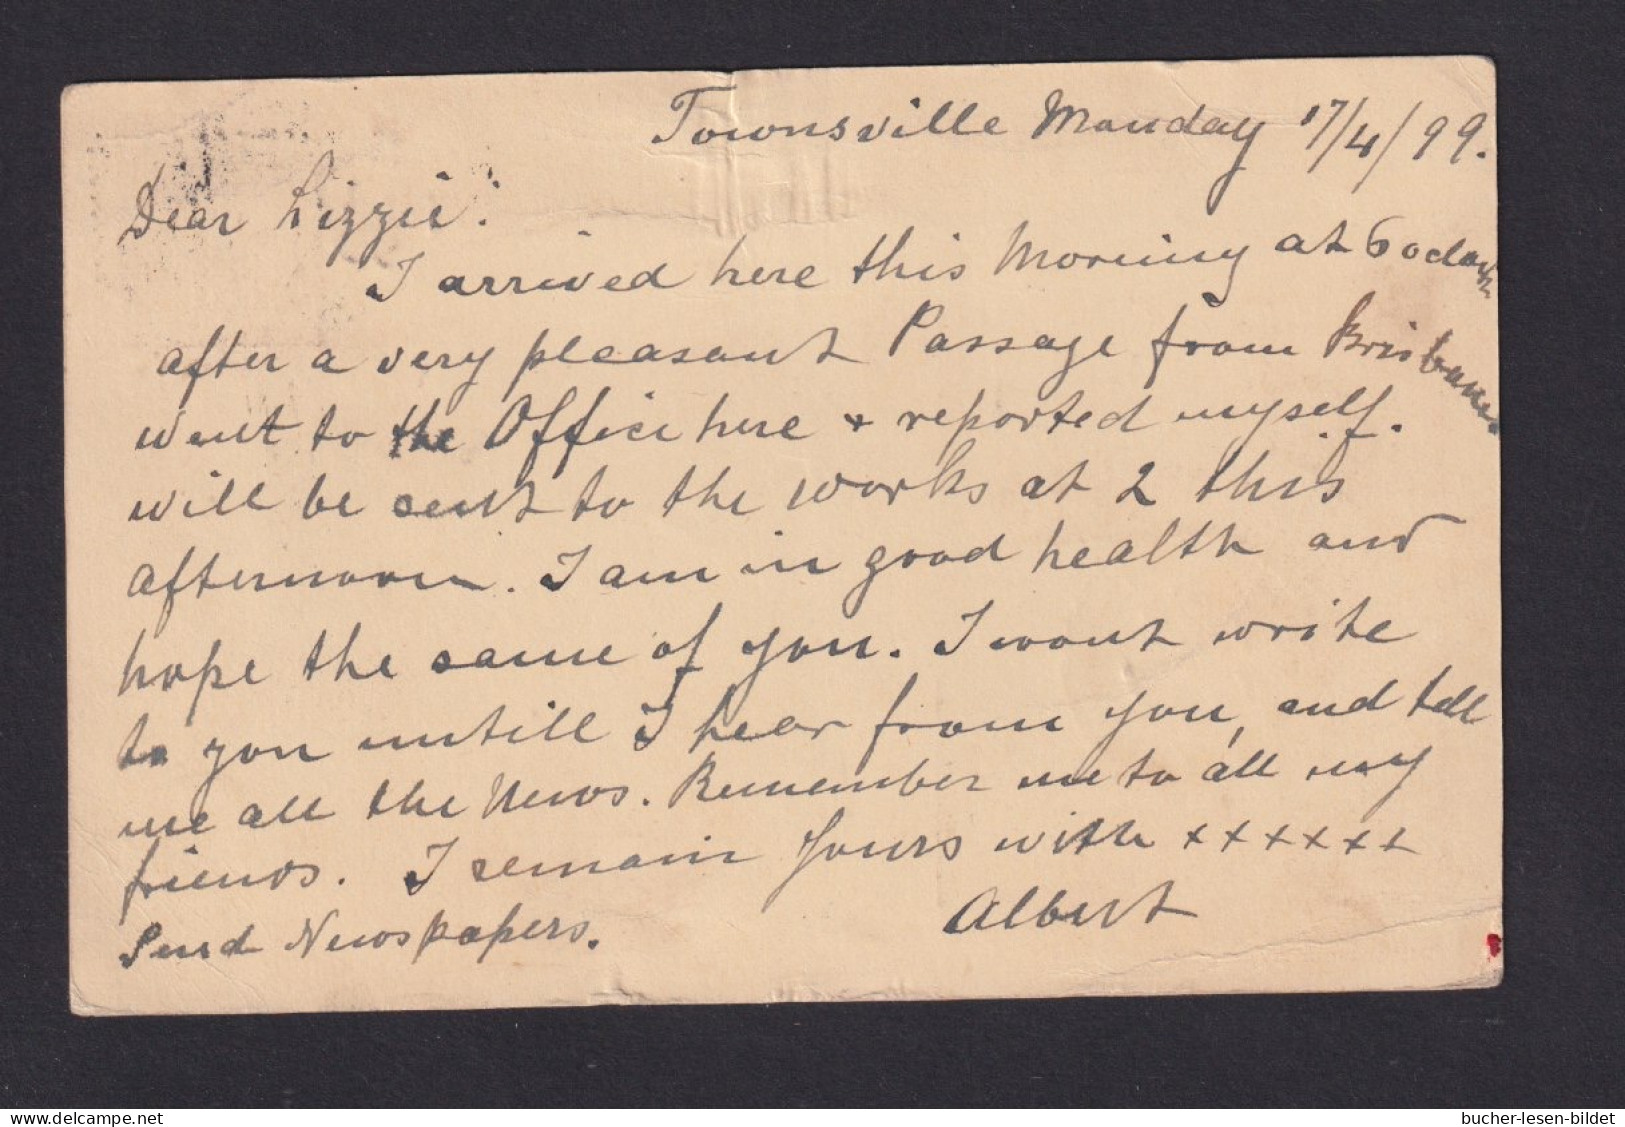 Townsville Monday 17/4/99.
Dear Lizzie.
I arrived here this Morning at 6 oclock
after a very pleasant Passage from Brisbane
went to the Office here + reported myself.
will be sent to the works at 2 this
afternoon. I am in good health and
hope the same of you. I wont write
to you untill I hear from you, and tell
me all the News. Remember me to all my
friends. I remain Yours with xxxxxx
Albert
Send Newspapers.
delcampe.net
bucher-lesen-bildet